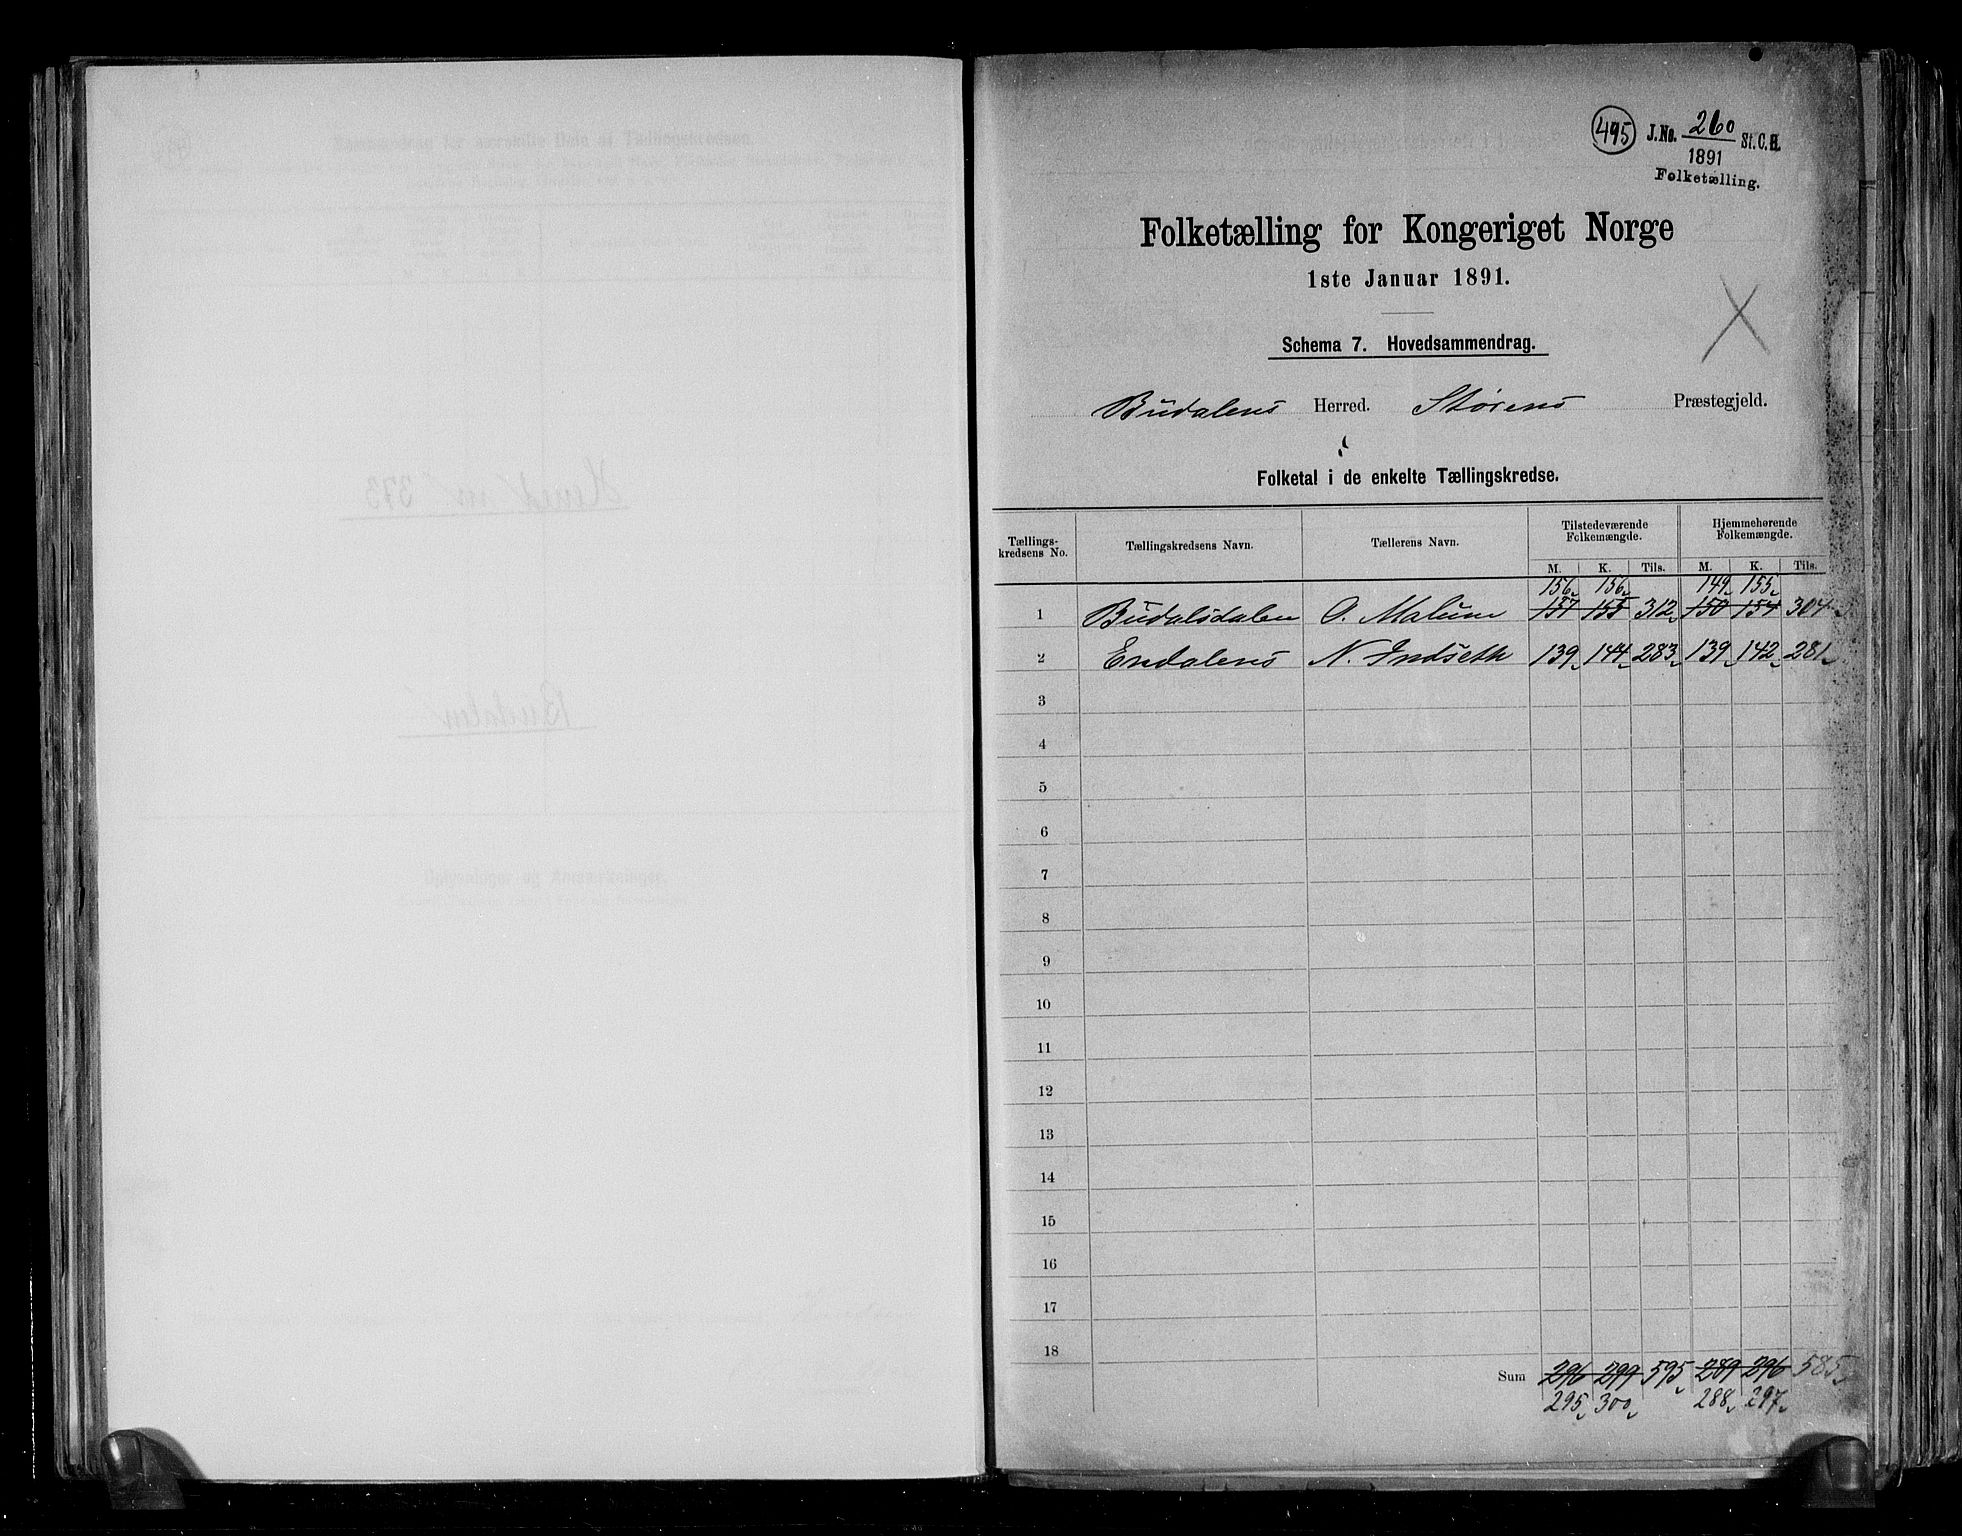 495 J.No. 260 St.C.B.
1891
Folketælling.
Folketælling for Kongeriget Norge
1ste Januar 1891.
Schema 7. Hovedsammendrag.
Budalens Herred. Størens Præstegjeld.
Folketal i de enkelte Tællingskredse.
Tællings-kredsens No. Tællingskredsens Navn. Tællerens Navn. Tilstedeværende Folkemængde. Hjemmehørende Folkemængde.
M. K. Tils. M. K. Tils.
156 156 149 155
1 Budalsdalen O. Malum 157 155 312 150 154 304
2 Endalens N. Indseth 139 144 283 139 142 281
3
4
5
6
7
8
9
10
11
12
13
14
15
16
17
18
Sum 296 299 595 289 296 585
295 300 288 297
Herred nr 373
Budalen